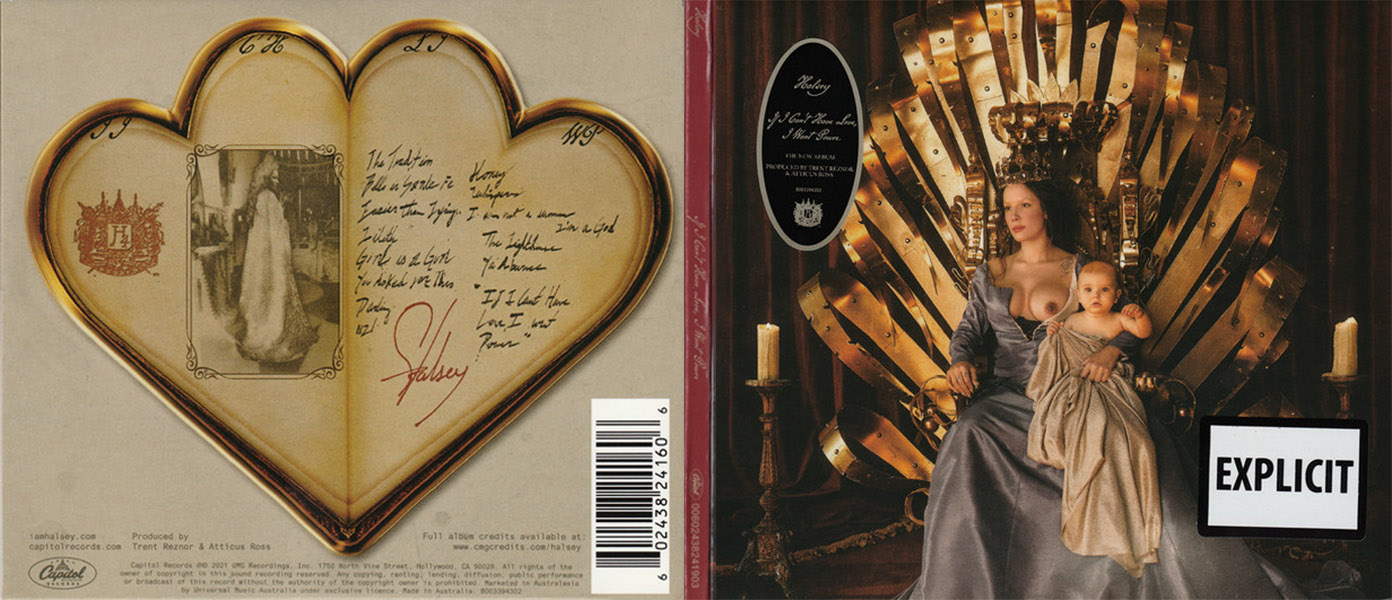 C H
L J
J J
WP
H
The Tradition
Bells in Santa Fe
Easier than Lying
Lilith
Girl is a Gun
You Asked for This
Darling
1121
Honey
Whispers
I am not a woman
I'm a God
The Lighthouse
Ya'aburnee
"If I Can't Have
Love, I want
Power"
Halsey
iamhalsey.com
capitolrecords.com
Produced by
Trent Reznor & Atticus Ross
Full album credits available at:
www.cmgcredits.com/halsey
Capitol Records ℗© 2021 UMG Recordings, Inc. 1750 North Vine Street, Hollywood, CA 90028. All rights of the
owner of copyright in this sound recording reserved. Any copying, renting, lending, diffusion, public performance
or broadcast of this record without the authority of the copyright owner is prohibited. Marketed in Australasia
by Universal Music Australia under exclusive licence. Made in Australia. B003394302
Capitol
RECORDS
6 02438 24160 6
Halsey
If I Can't Have Love, I Want Power
Capitol
00602438241903
Halsey
If I Can't Have Love,
I Want Power
THE NEW ALBUM
PRODUCED BY TRENT REZNOR
& ATTICUS ROSS
B003394302
EXPLICIT